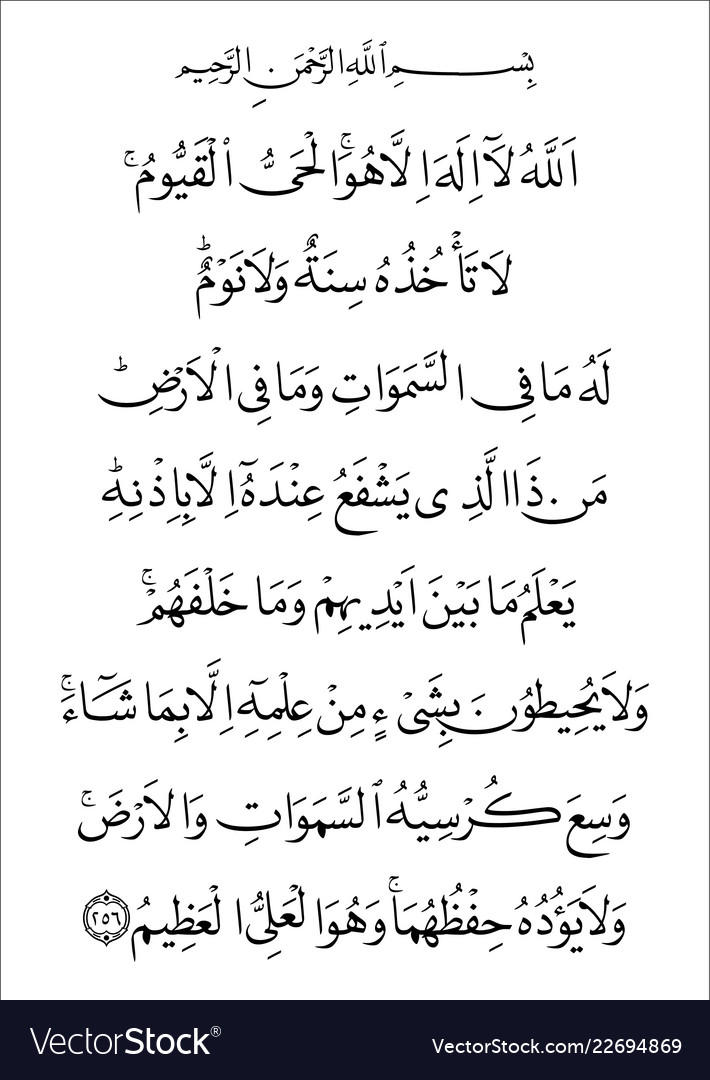 بِسْمِ ٱللَّهِ الرَّحْمَنِ الرَّحِيمِ
اَللَّهُ لَآ اِلَهَ اِلَّا هُوَۚ الْحَىُّ ٱلْقَيُّومُۚ
لَا تَأْخُذُهُ سِنَةٌ وَلَا نَوْمٌؕ
لَهُ مَا فِى السَّمَوَاتِ وَمَا فِى الْاَرْضِؕ
مَن ذَا الَّذِى يَشْفَعُ عِنْدَهُٓ اِلَّا بِاِذْنِهِؕ
يَعْلَمُ مَا بَيْنَ اَيْدِيهِمْ وَمَا خَلْفَهُمْۚ
وَلَا يُحِيطُونَ بِشَىْءٍ مِنْ عِلْمِهِٓ اِلَّا بِمَا شَآءَۚ
وَسِعَ كُرْسِيُّهُ ٱلسَّمَوَاتِ وَالاَرْضَۚ
وَلَا يَؤُدُهُ حِفْظُهُمَاۚ وَهُوَ الْعَلِىُّ الْعَظِيمُ ٢٥٦
VectorStock®
VectorStock.com/22694869